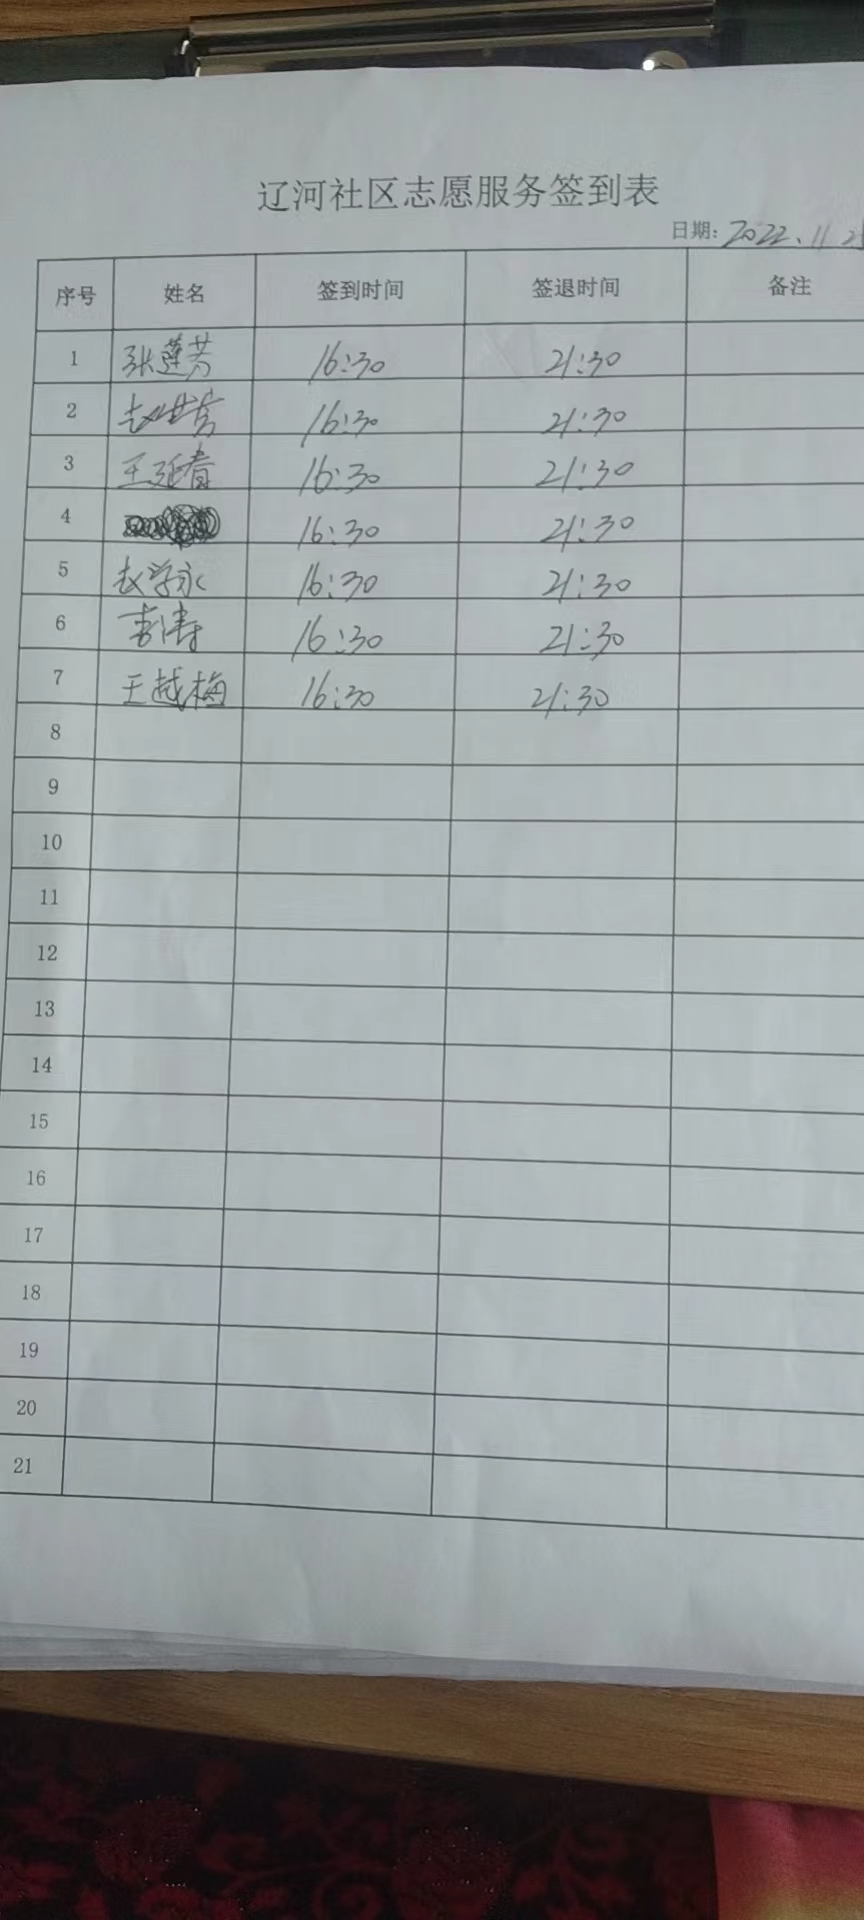 辽河社区志愿服务签到表
日期: 2022.11 2
序号 姓名 签到时间 签退时间 备注
1 张莲芳 16:30 21:30
2 16:30 21:30
3 王延春 16:30 21:30
4 16:30 21:30
5 赵学永 16:30 21:30
6 李涛 16:30 21:30
7 王越梅 16:30 21:30
8
9
10
11
12
13
14
15
16
17
18
19
20
21